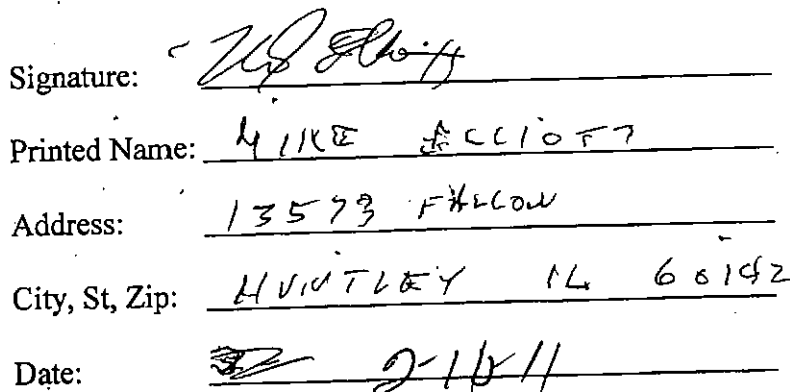 Signature:
Printed Name: MIKE ELLIOTT
Address: 13573 FALCON
City, St, Zip: HUNTLEY IL 60142
Date: 2-10-11